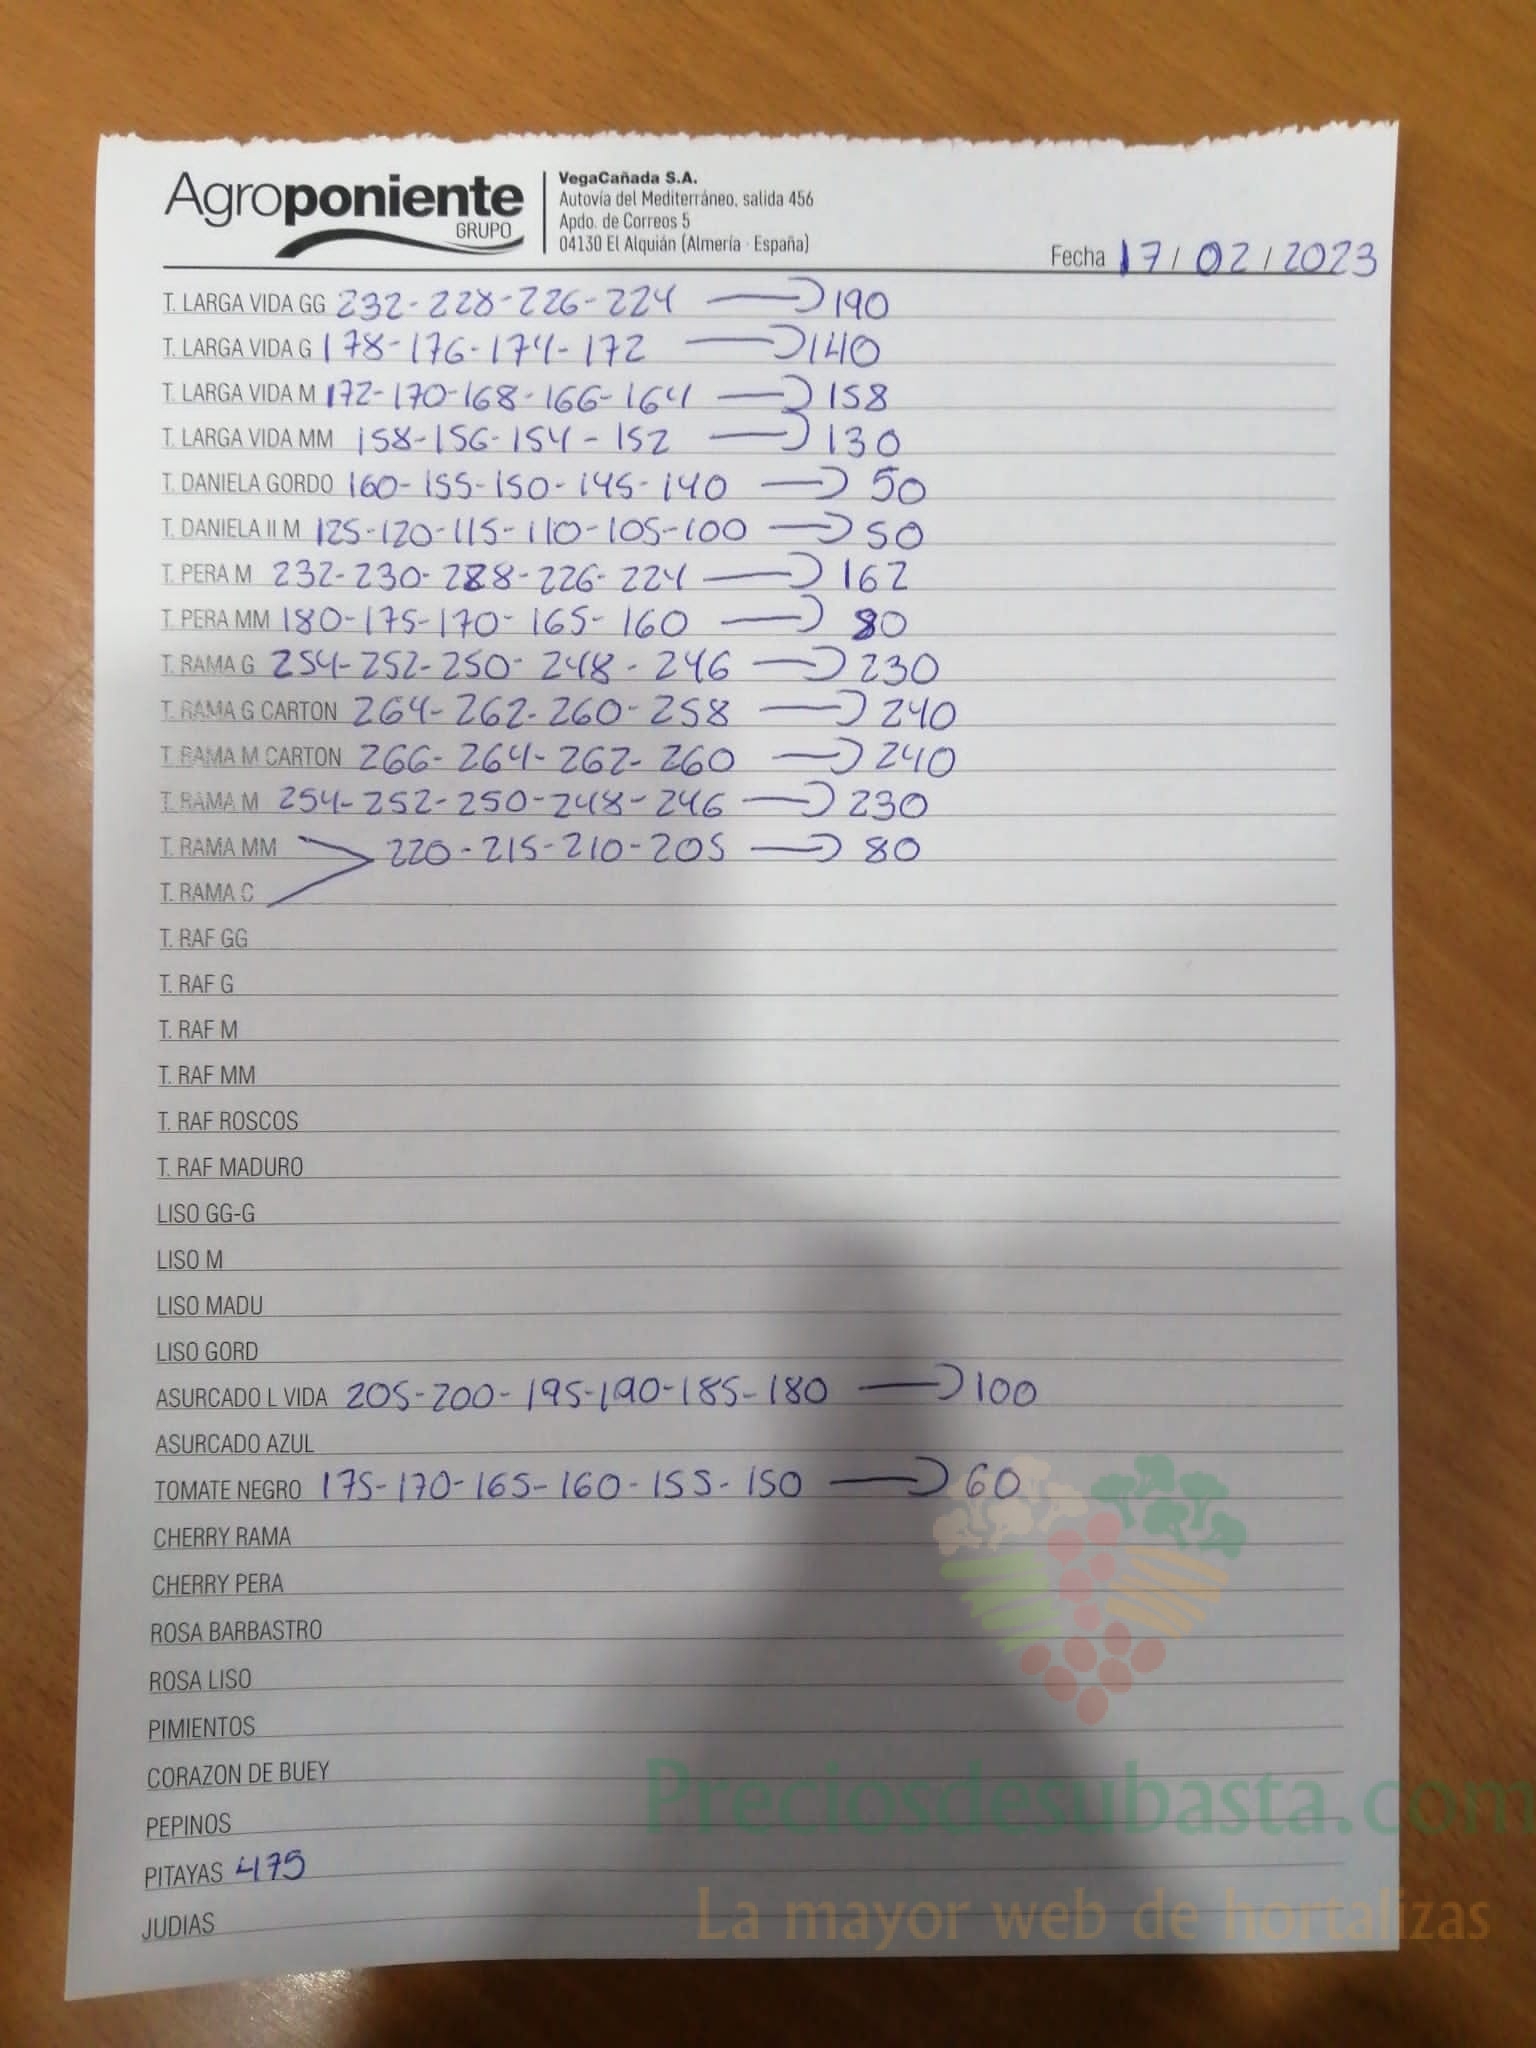 Agroponiente
GRUPO
VegaCañada S.A.
Autovía del Mediterráneo, salida 456
Apdo. de Correos 5
04130 El Alquián (Almería · España)
Fecha 17/02/2023
T. LARGA VIDA GG 232-228-226-224 → 190
T. LARGA VIDA G 178-176-174-172 → 140
T. LARGA VIDA M 172-170-168-166-164 → 158
T. LARGA VIDA MM 158-156-154-152 → 130
T. DANIELA GORDO 160-155-150-145-140 → 50
T. DANIELA II M 125-120-115-110-105-100 → 50
T. PERA M 232-230-228-226-224 → 162
T. PERA MM 180-175-170-165-160 → 80
T. RAMA G 254-252-250-248-246 → 230
T. RAMA G CARTON 264-262-260-258 → 240
T. RAMA M CARTON 266-264-262-260 → 240
T. RAMA M 254-252-250-248-246 → 230
T. RAMA MM 220-215-210-205 → 80
T. RAMA C
T. RAF GG
T. RAF G
T. RAF M
T. RAF MM
T. RAF ROSCOS
T. RAF MADURO
LISO GG-G
LISO M
LISO MADU
LISO GORD
ASURCADO L VIDA 205-200-195-190-185-180 → 100
ASURCADO AZUL
TOMATE NEGRO 175-170-165-160-155-150 → 60
CHERRY RAMA
CHERRY PERA
ROSA BARBASTRO
ROSA LISO
PIMIENTOS
CORAZON DE BUEY
PEPINOS
PITAYAS 475
JUDIAS
Preciosdesubasta.com
La mayor web de hortalizas